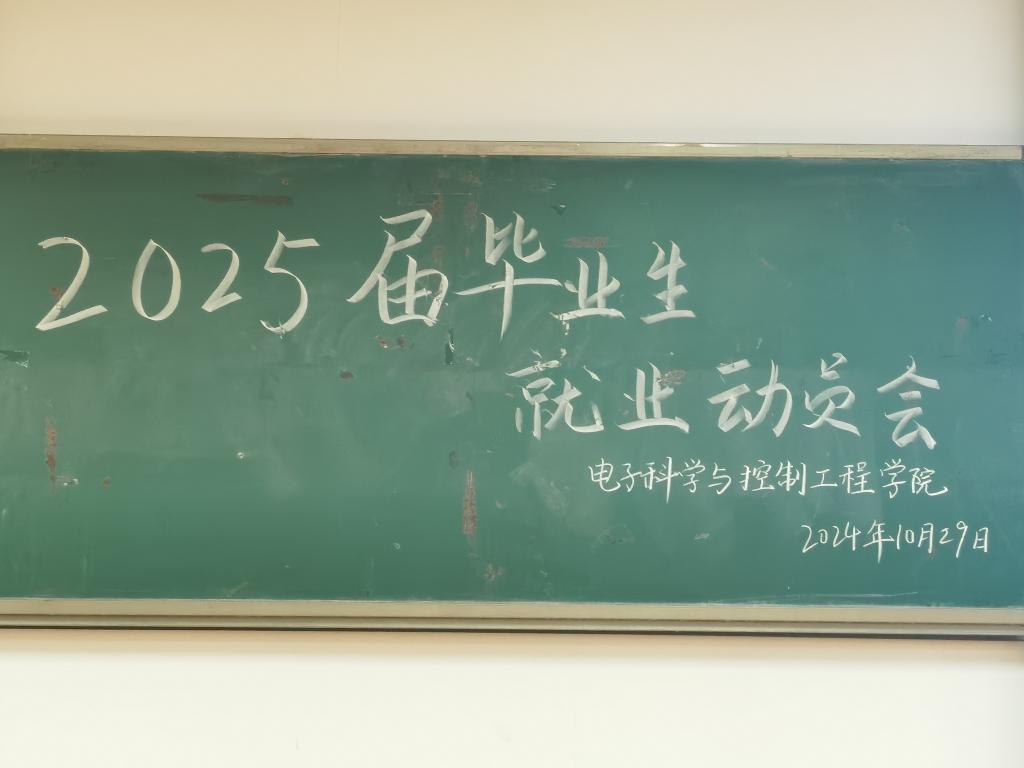 2025届毕业生
就业动员会
电子科学与控制工程学院
2024年10月29日